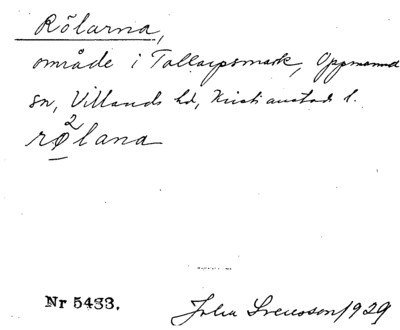 Rölarna,
område i Tollarpsmark, Oppmanna
sn, Villands hd, Kristianstads l.
2
rølana
Nr 5433.
Julia Svensson 1929